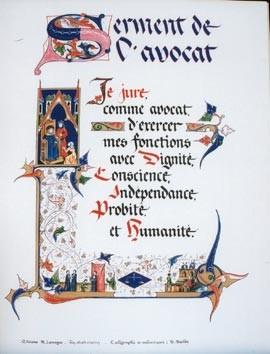 Serment de
l'avocat
Je jure,
comme avocat
d'exercer
mes fonctions
avec Dignité
Conscience,
Indépendance,
Probité
et Humanité